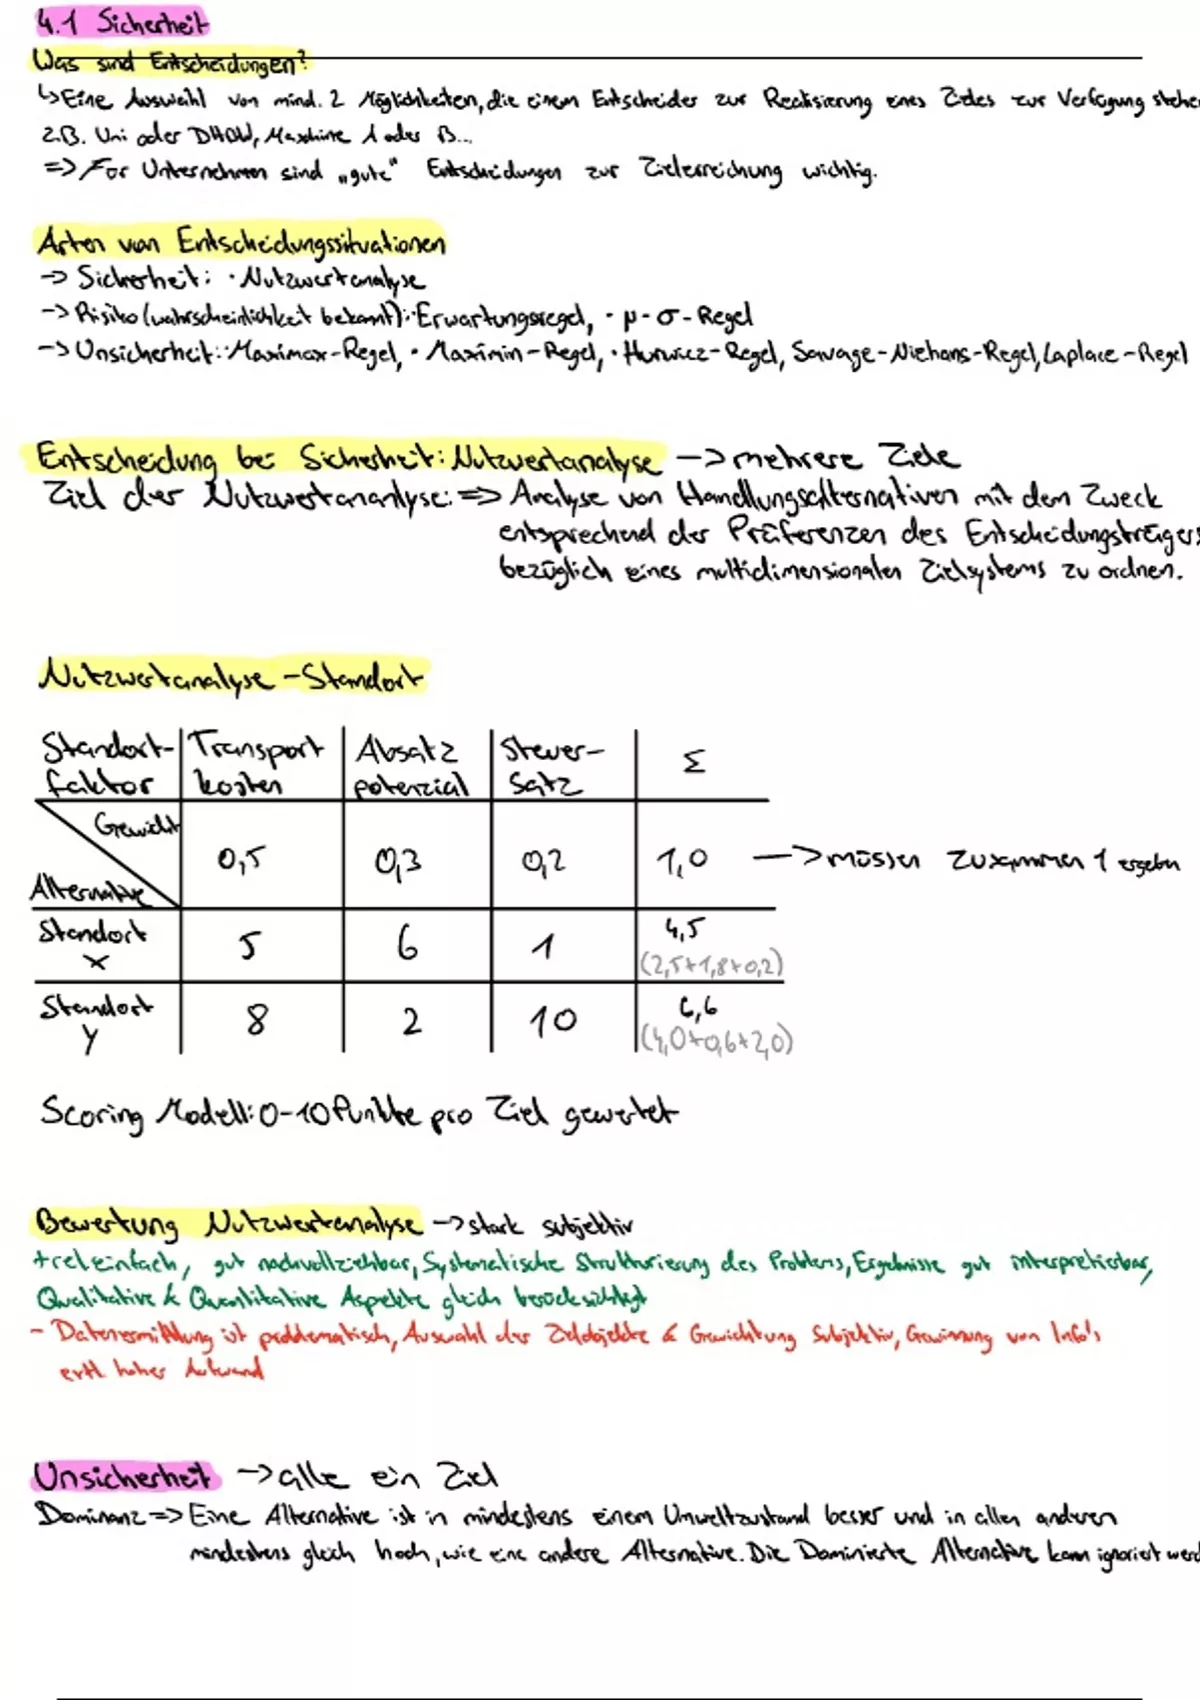 4.1 Sicherheit
Was sind Entscheidungen?
↳ Eine Auswahl von mind. 2 Möglichkeiten, die einem Entscheider zur Realisierung eines Zieles zur Verfügung stehe
z.B. Uni oder DHBW, Maschine A oder B...
=> Für Unternehmen sind „gute“ Entscheidungen zur Zielerreichung wichtig.
Arten von Entscheidungssituationen
-> Sicherheit: · Nutzwertanalyse
-> Risiko (wahrscheinlichkeit bekannt): · Erwartungsregel, · μ-σ-Regel
-> Unsicherheit: · Maximax-Regel, · Maximin-Regel, · Hurwicz-Regel, Savage-Niehans-Regel, Laplace-Regel
Entscheidung bei Sicherheit: Nutzwertanalyse -> mehrere Ziele
Ziel der Nutzwertananlyse: => Analyse von Handlungsalternativen mit dem Zweck
entsprechend der Präferenzen des Entscheidungsträgers
bezüglich eines multidimensionalen Zielsystems zu ordnen.
Nutzwertanalyse - Standort
Standort- Transport Absatz Steuer- Σ
faktor kosten potenzial satz
Gewicht
0,5 0,3 0,2 1,0 -> müssen zusammen 1 ergeben
Alternative
Standort 5 6 1 4,5
x (2,5+1,8+0,2)
Standort 8 2 10 6,6
y (4,0+0,6+2,0)
Scoring Modell: 0-10 Punkte pro Ziel gewertet
Bewertung Nutzwertanalyse -> stark subjektiv
+ rel. einfach, gut nachvollziehbar, Systematische Strukturierung des Problems, Ergebnisse gut interpretierbar,
Qualitative & Quantitative Aspekte gleich berücksichtigt
- Datenermittlung ist problematisch, Auswahl der Zielobjekte & Gewichtung Subjektiv, Gewinnung von Info's
evtl. hoher Aufwand
Unsicherheit -> alle ein Ziel
Dominanz => Eine Alternative ist in mindestens einem Umweltzustand besser und in allen anderen
mindestens gleich hoch, wie eine andere Alternative. Die Dominierte Alternative kann ignoriert werd